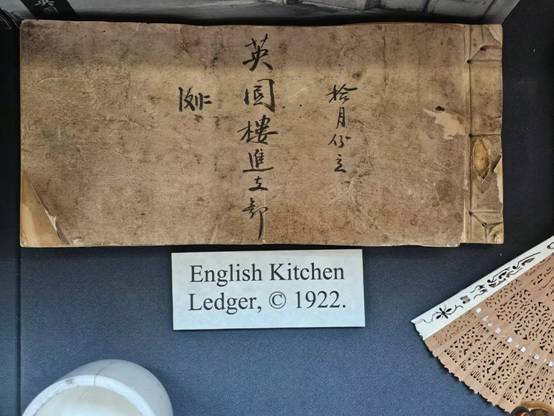 拾月份立
英圓樓進支部
English Kitchen
Ledger, © 1922.